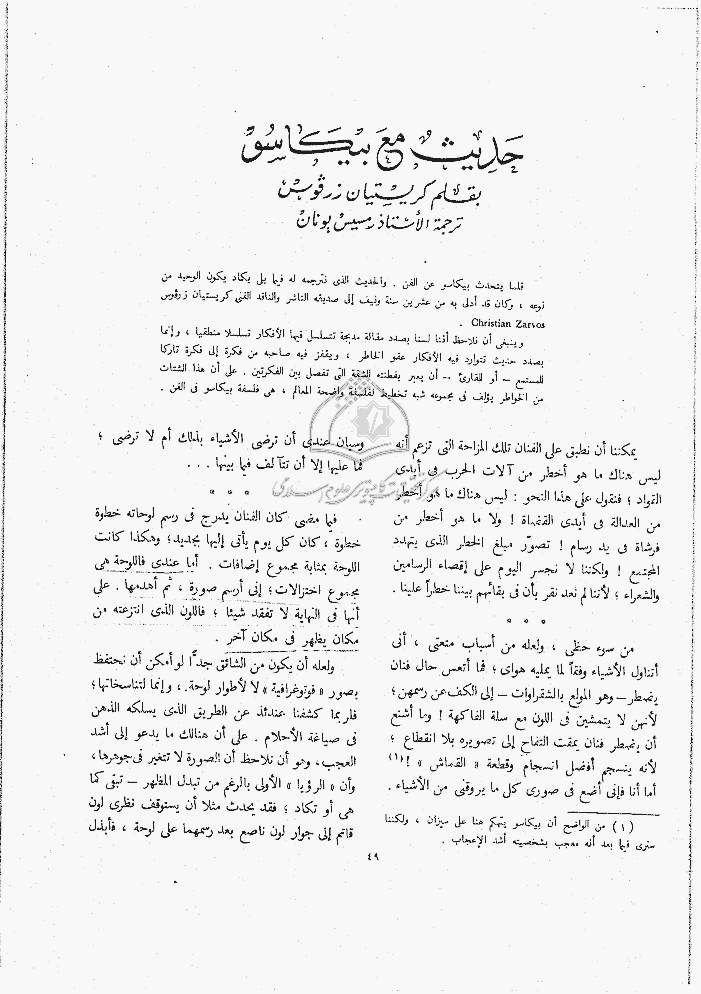 حديث مع بيكاسو
بقلم كريستيان زرفوس
ترجمة الأستاذ رمسيس يونان
قلما يتحدث بيكاسو عن الفن . والحديث الذى نترجمه له فيما يلى يكاد يكون الوحيد من
نوعه ، وكان قد أدلى به من عشرين سنة ونيف إلى صديقه الناشر والناقد الفنى كريستيان زرڤوس
Christian Zarvos .
وينبغى أن نلاحظ أننا لسنا بصدد مقالة مدبجة تتسلسل فيها الأفكار تسلسلا منطقيا ، وإنما
بصدد حديث تتوارد فيه الأفكار عفو الخاطر ، ويقفز فيه صاحبه من فكرة إلى فكرة تاركا
للمستمع — أو للقارئ — أن يعبر بفطنته الشقة التى تفصل بين الفكرتين . على أن هذا الشتات
من الخواطر يؤلف فى مجموعه شبه تخطيط لفلسفة واضحة المعالم ، هى فلسفة بيكاسو فى الفن .
يمكننا أن نطبق على الفنان تلك المزاحة التى تزعم أنه
ليس هناك ما هو أخطر من آلات الحرب فى أيدى
القواد ؛ فنقول على هذا النحو : ليس هناك ما هو أخطر
من العدالة فى أيدى القضاة ! ولا ما هو أخطر من
فرشاة فى يد رسام ! تصوّر مبلغ الخطر الذى يتهدد
المجتمع ! ولكننا لا نجسر اليوم على إقصاء الرسامين
والشعراء ؛ لأننا لم نعد نقر بأن فى بقائهم بيننا خطراً علينا .
* * *
من سوء حظى ، ولعله من أسباب متعتى ، أنى
أتناول الأشياء وفقاً لما يمليه هواى ؛ فما أتعس حال فنان
يضطر — وهو المولع بالشقراوات — إلى الكف عن رسمهن ؛
لأنهن لا يتمشين فى اللون مع سلة الفاكهة ! وما أشنع
أن يضطر فنان يمقت التفاح إلى تصويره بلا انقطاع ؛
لأنه ينسجم أفضل انسجام وقطعة « القماش » !(١)
أما أنا فإنى أضع فى صورى كل ما يروقنى من الأشياء .
(١) من الواضح أن بيكاسو يتهكم هنا على سيزان ، ولكننا
سنرى فيما بعد أنه معجب بشخصيته أشد الإعجاب .
وسيان عندى أن ترضى الأشياء بذلك أم لا ترضى ؛
فما عليها إلا أن تتآلف فيما بينها . . .
* * *
فيما مضى كان الفنان يدرج فى رسم لوحاته خطوة
خطوة ، كان كل يوم يأتى إليها بجديد ؛ وهكذا كانت
اللوحة بمثابة مجموع إضافات . أما عندى فاللوحة هى
مجموع اختزالات ؛ إنى أرسم صورة ، ثم أهدمها . على
أنها فى النهاية لا تفقد شيئا ؛ فاللون الذى انتزعته من
مكان يظهر فى مكان آخر .
ولعله أن يكون من الشائق جدًّا لو أمكن أن نحتفظ
بصور « فوتوغرافية » لا لأطوار لوحة ، وإنما لتناسخاتها ؛
فلربما كشفنا عندئذ عن الطريق الذى يسلكه الذهن
فى صياغة الأحلام . على أن هنالك ما يدعو إلى أشد
العجب ، وهو أن نلاحظ أن الصورة لا تتغير فى جوهرها ،
وأن « الرؤيا » الأولى بالرغم من تبدل المظهر — تبقى كما
هى أو تكاد ؛ فقد يحدث مثلا أن يستوقف نظرى لون
قاتم إلى جوار لون ناصع بعد رسمهما على لوحة ، فأبذل
٤٩